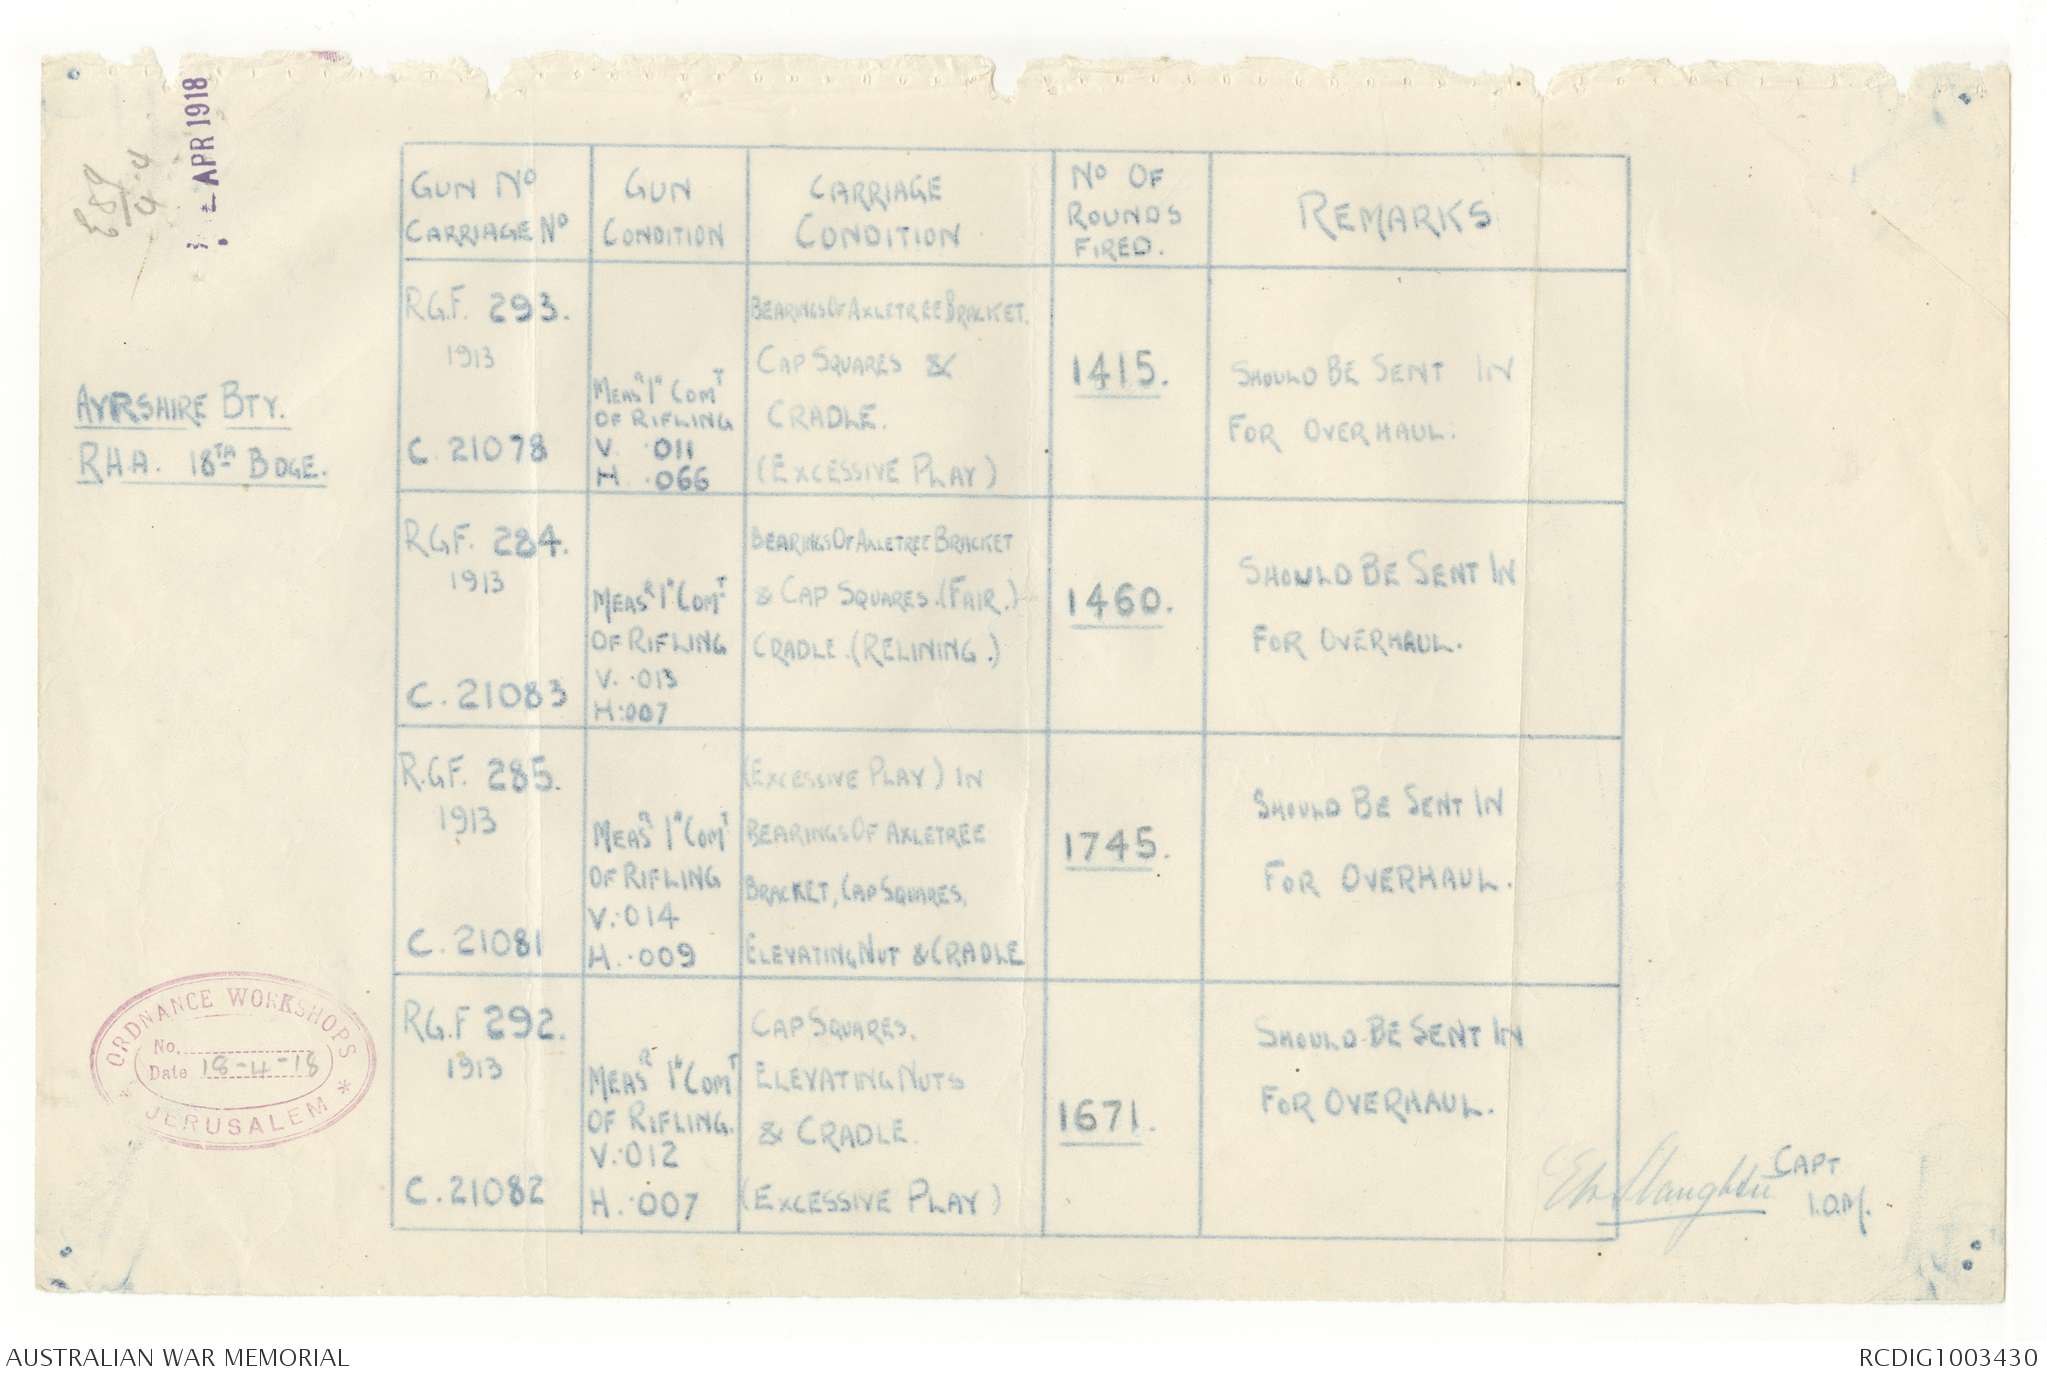 APR 1918
E59
4.4
AYRSHIRE BTY.
RHA. 18TH BDGE.
GUN No
CARRIAGE No
GUN
CONDITION
CARRIAGE
CONDITION
No OF
ROUNDS
FIRED.
REMARKS
R.G.F. 293.
1913
C. 21078
MEASR 1" COMT
OF RIFLING
V. .011
H. .066
BEARINGS OF AXLETREE BRACKET.
CAP SQUARES &
CRADLE.
(EXCESSIVE PLAY)
1415.
SHOULD BE SENT IN
FOR OVERHAUL.
RGF. 284.
1913
C. 21083
MEASR 1" COMT
OF RIFLING
V. .013
H. .007
BEARINGS OF AXLETREE BRACKET
& CAP SQUARES. (FAIR.)
CRADLE. (RELINING.)
1460.
SHOULD BE SENT IN
FOR OVERHAUL.
R.GF. 285.
1913
C. 21081
MEASR 1" COMT
OF RIFLING
V. .014
H. .009
(EXCESSIVE PLAY) IN
BEARINGS OF AXLETREE
BRACKET, CAP SQUARES,
ELEVATING NUT & CRADLE
1745.
SHOULD BE SENT IN
FOR OVERHAUL.
RG.F 292.
1913
C. 21082
MEASR 1" COMT
OF RIFLING.
V. .012
H. .007
CAP SQUARES.
ELEVATING NUTS
& CRADLE.
(EXCESSIVE PLAY)
1671.
SHOULD BE SENT IN
FOR OVERHAUL.
ORDNANCE WORKSHOPS
No.
Date 18-4-18
* JERUSALEM *
CAPT
I.O.M.
AUSTRALIAN WAR MEMORIAL
RCDIG1003430